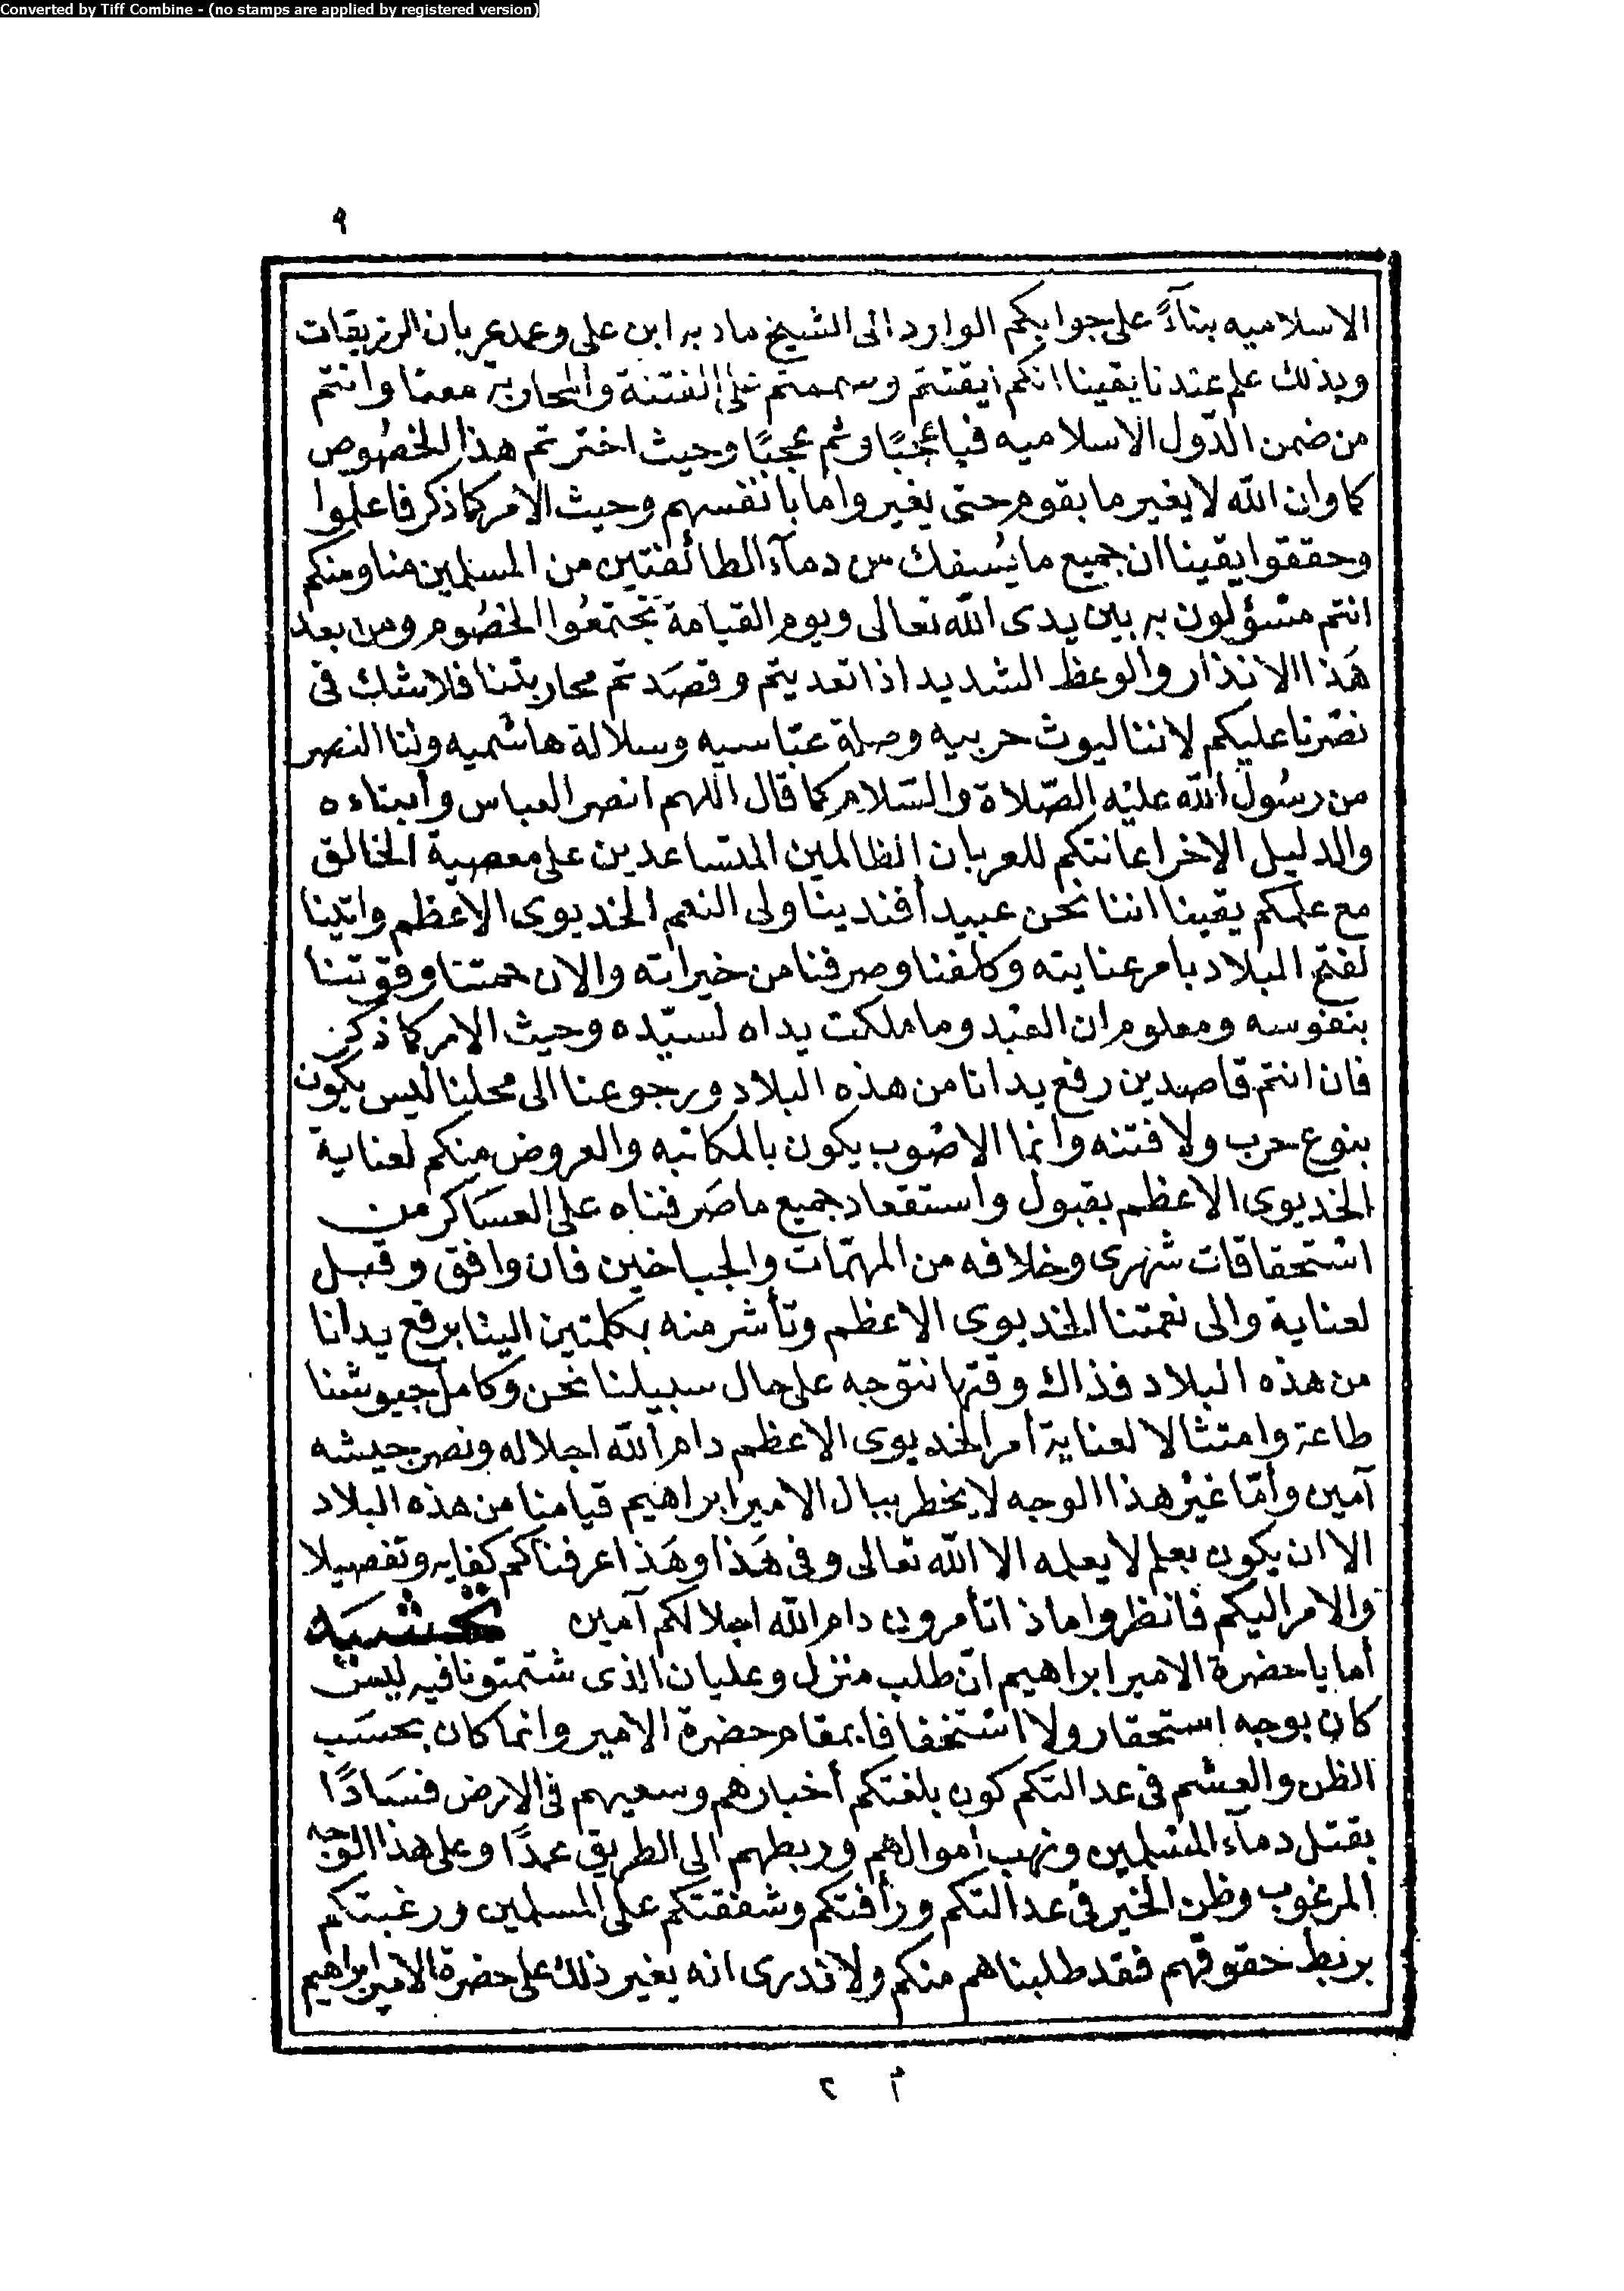 Converted by Tiff Combine - (no stamps are applied by registered version)
٩
الاسلاميه بنآءً على جوابكم الوارد الى الشيخ مادبه ابن على وعمد عربان الرزيقات
وبذلك علم عندنا يقينا انكم أيقنتم وصممتم على الفتنة والمحاربة معنا وانتم
من ضمن الدّول الاسلاميه فيا عجبًا وثم عجبًا وحيث اخترتم هذا الخصُوص
كما وان الله لا يغير ما بقوم حتى يغيروا ما بانفسهم وحيث الامر كما ذكر فاعلموا
وحققوا يقينا ان جميع ما يُسفك من دمآء الطائفتين من المسلمين منا ومنكم
انتم مسؤلون به بين يدى الله تعالى ويوم القيامة تجتمعُوا الخصُوم ومن بعد
هَذا الانذار والوعظ الشديد اذا تعديتم وقصَدتم محاربتنا فلا شك فى
نصْرنا عليكم لاننا ليوث حربيه وصلة عبّاسيه وسلالة هاشميه ولنا النصر
من رسُول الله عليْه الصّلاة والسّلام كما قال اللهم انصر العباس وأبناءه
والدليل الاخر اعانتكم للعربان الظالمين المتساعدين على معصية الخالق
مع علمكم يقينا اننا نحن عبيد أفندينا ولى النعم الخديوى الاعظم واتينا
لفتح البلاد بامر عنايته وكلفنا وصرفنا من خيراته والان همتنا وقوتنا
بنفوسه ومعلوم ان العبْد وما ملكت يداه لسيّده وحيث الامر كما ذكر
فان انتم قاصدين رفع يدانا من هذه البلاد ورجوعنا الى محلنا ليس يكون
بنوع حرب ولا فتنه وانما الاصْوب يكون بالمكاتبه والعروض منكم لعناية
الخديوى الاعظم بقبول واستقعاد جميع ما صَرفناه على العسَاكر من
استْحقاقات شهرى وخلافه من المهمّات والجباخين فان وافق وقبل
لعناية والى نعمتنا الخديوى الاعظم وتأشر منه بكلمتين الينا برفع يدانا
من هذه البلاد فذاك وقتها نتوجه على حال سبيلنا نحن وكامل جيوشنا
طاعة وامتثالا لعناية أمر الخديوى الاعظم دام الله اجلاله ونصر جيشه
آمين وأمّا غيْر هذا الوجه لا يخطر ببال الامير ابراهيم قيامنا من هذه البلاد
الا ان يكون بعلم لا يعلمه الا الله تعالى وفى هَذا وهَذا عرفناكم كفايه وتفصيلا
والامر اليكم فانظروا ماذا تأمرون دام الله اجلالكم آمين تحشيَه
أما يا حضرة الامير ابراهيم انّ طلب منزل وعليان الذى شتمتونا فيه ليسَ
كان بوجه استحقار ولا استْخفافا بمقام حضرة الامير وانما كان بحسَب
الظن والعشم فى عدالتكم كون بلغتكم أخبارهم وسعيهم فى الارض فسَادًا
بقتل دمآء المسْلمين ونهب أموالهم وربطهم الى الطريق عمدًا وعلى هذا الوجه
المرغوب وظن الخير فى عدالتكم ورأفتكم وشفقتكم على المسلمين ورغبتكم
بربط حقوقهم فقد طلبناهم منكم ولا ندرى انه يغير ذلك على حضرة الامير ابراهيم
٢ م